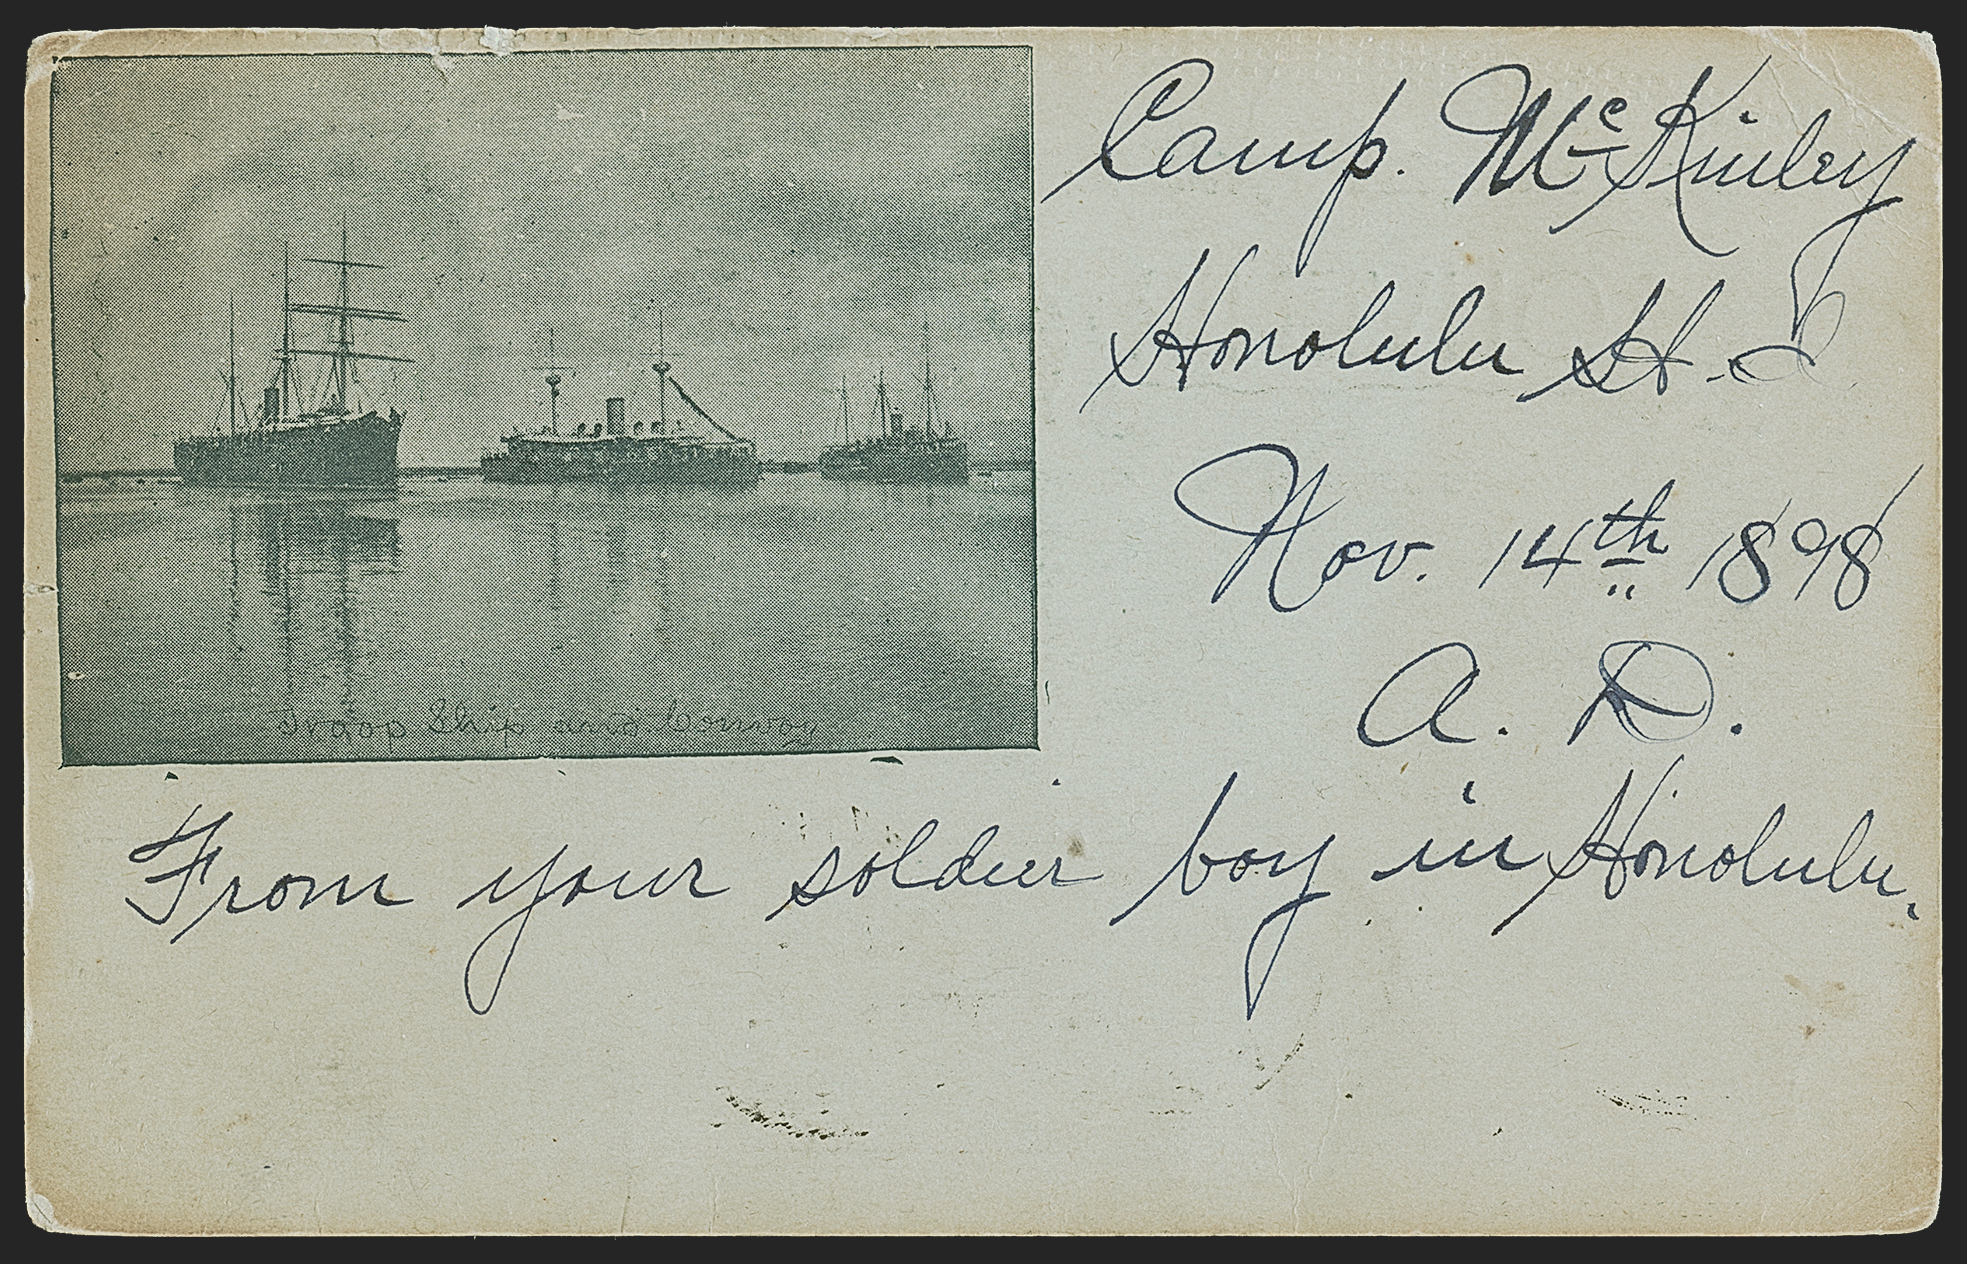 Camp. McKinley
Honolulu H. I.
Nov. 14th 1898
A. D.
Troop Ship and Convoy
From your soldier boy in Honolulu.